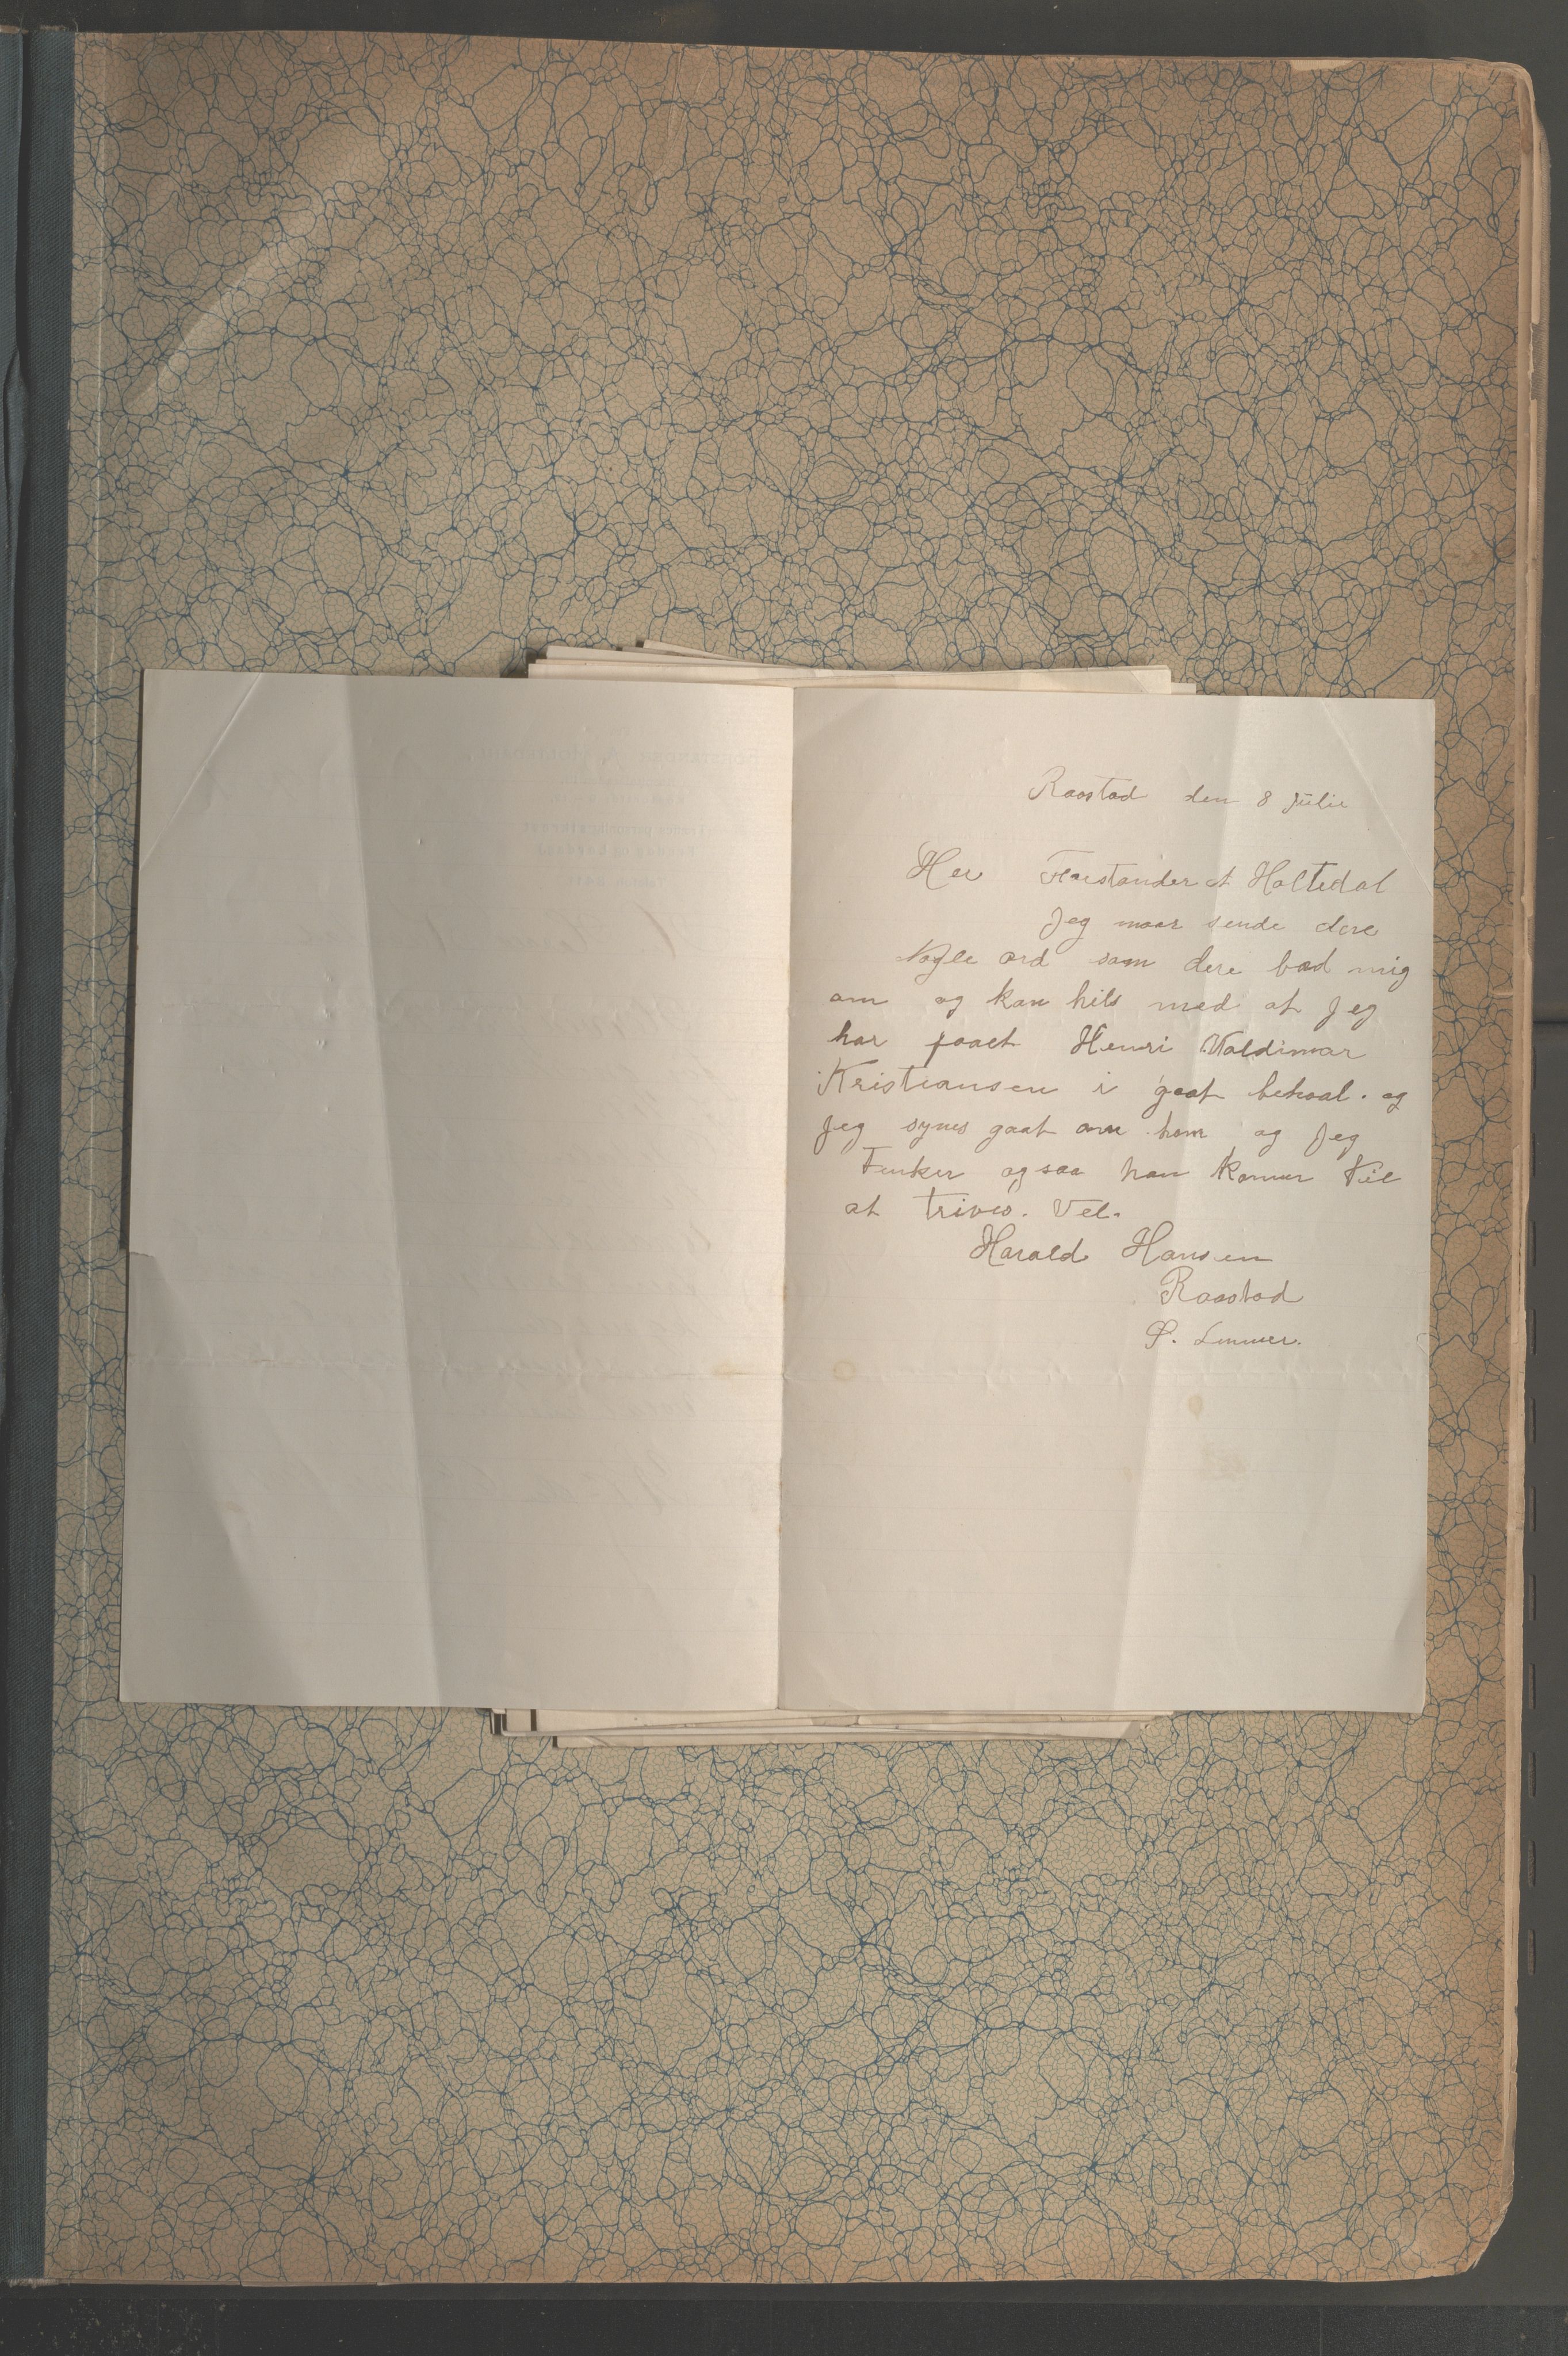 Raastad den 8 Julie
Her Forstander A Holtedal
Jeg maar sende dere
Nogle ord som dere bad mig
om og kan hils med at Jeg
har faaet Henri Valdimar
Kristiansen i goat behoal. og
Jeg synes goat om ham og Jeg
Tenker og saa han komer til
at trives. Vel.
Harald Hansen
Raastad
P. Lunner.